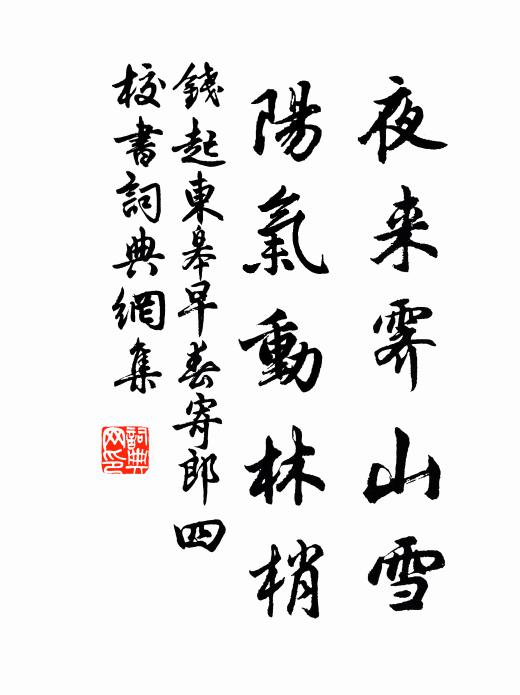 夜来霽山雪
陽氣動林梢
錢起東皋早春寄郎四
校書詞典網集
詞典
网印